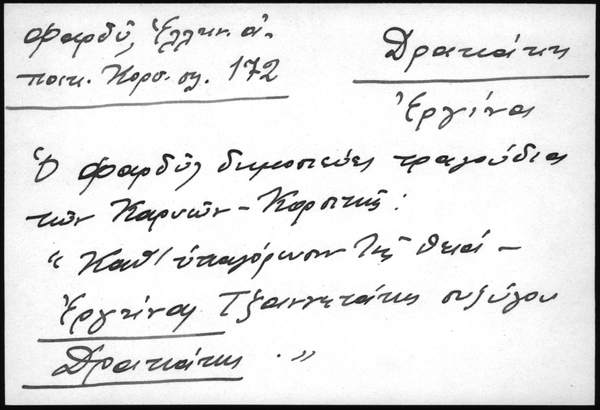 Φαρδῦ, Ἑλλην. ἀ-
ποικ. Κορσ. σλ. 172
Δρακάκης
Ἐργίνα
Ὁ Φαρδῦς δημοσιεύει τραγούδια
τῶν Καρυῶν - Κορσικῆς:
"Καθ' ὑπαγόρευσιν τῆς θείας
Ἐργίνας Τζαννετάκης συζύγου
Δρακάκης."